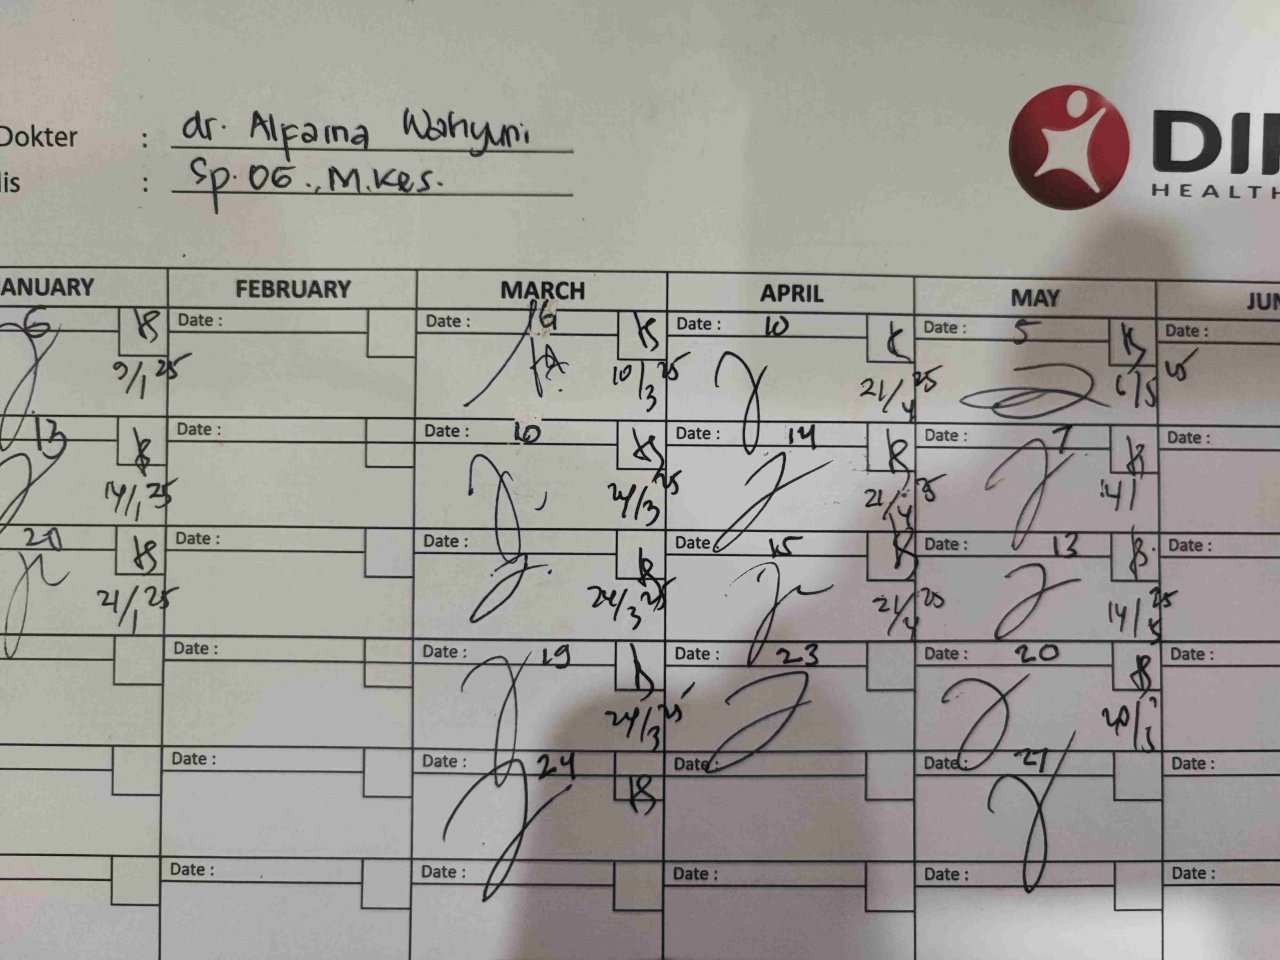 Dokter : dr. Alfaina Wahyuni
lis : Sp.OG., M.Kes.
DI
HEALTH
ANUARY FEBRUARY MARCH APRIL MAY JUN
6 Date : Date : Date : 10 Date : 5 Date :
9/1 25 10/3 25 21/4 25 6/5 25
13 Date : Date : 10 Date : 14 Date : 7 Date :
14/1 25 24/3 25 21/4 25 14/
20 Date : Date : Date : 15 Date : 13 Date :
21/1 25 24/3 25 21/4 25 14/5 25
Date : Date : 19 Date : 23 Date : 20 Date :
24/3 25 20/5
Date : Date : 24 Date : Date : 27 Date :
Date : Date : Date : Date : Date :